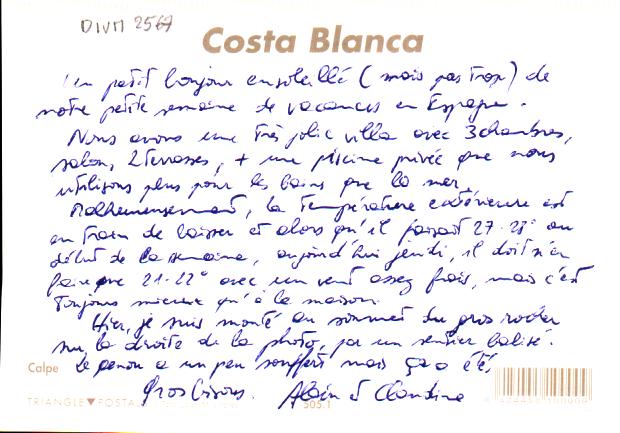 DIVM 2569
Costa Blanca
Un petit bonjour ensoleillé (mais pas trop) de
notre petite semaine de vacances en Espagne.
Nous avons une très jolie villa avec 3 chambres,
salon, 2 terrasses, + une piscine privée que nous
utilisons plus pour les bains que la mer.
Malheureusement, la température extérieure est
en train de baisser et alors qu'il faisait 27-28° au
début de la semaine, aujourd'hui jeudi, il doit n'en
faire que 21-22° avec un vent assez frais, mais c'est
toujours mieux qu'à la maison.
Hier, je suis monté au sommet du gros rocher
sur la droite de la photo, par un sentier balisé.
Le genou a un peu souffert mais ça a été.
Gros bisous. Alain et Claudine
Calpe
TRIANGLE▼POSTAL
505.1